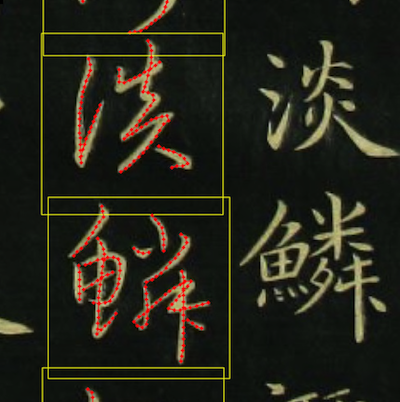 淡鱗
淡鱗